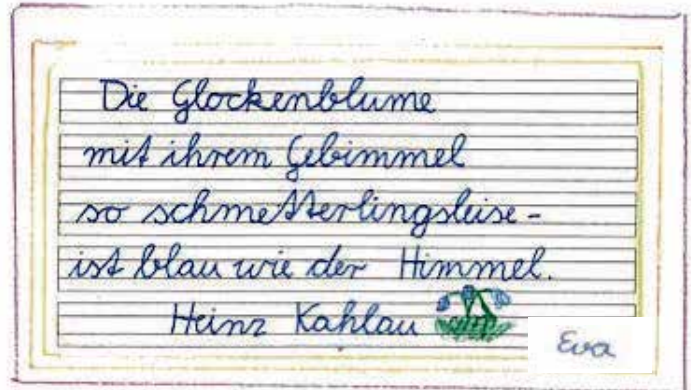 Die Glockenblume
mit ihrem Gebimmel
so schmetterlingsleise -
ist blau wie der Himmel.
Heinz Kahlau
Eva